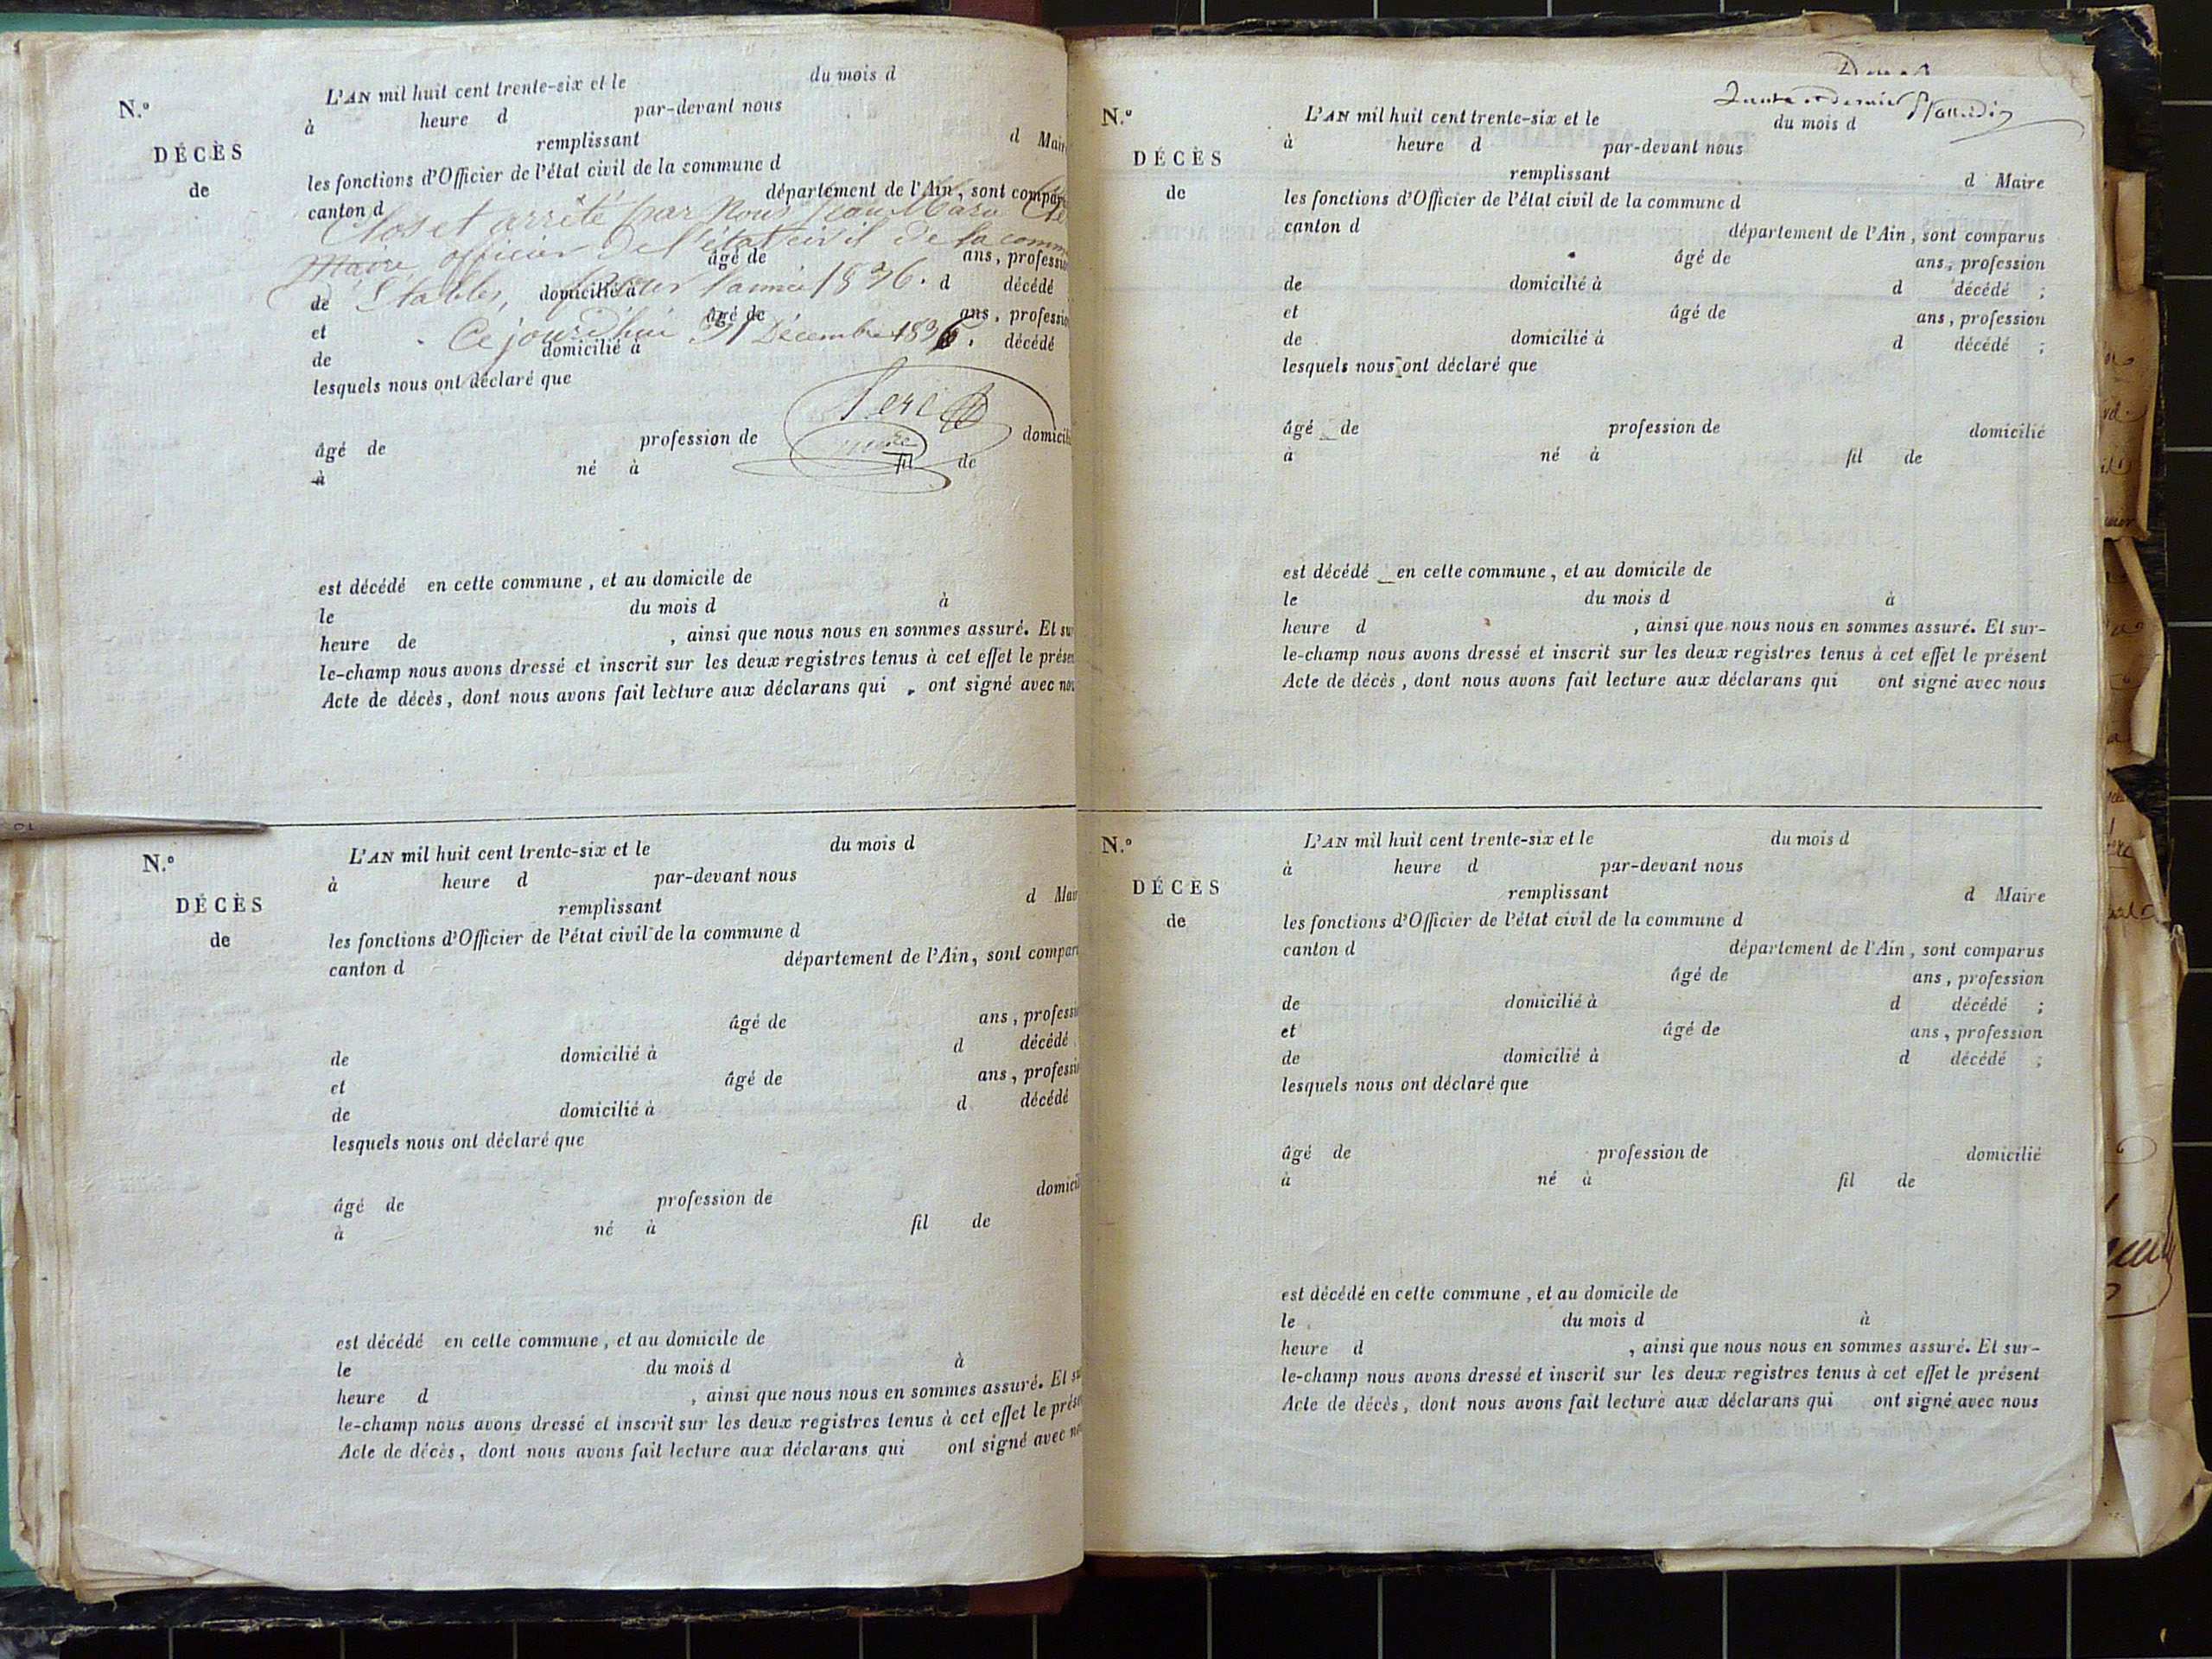 N.º
DÉCÈS
de
L'AN mil huit cent trente-six et le du mois d
à heure d par-devant nous
remplissant d Mair
les fonctions d'Officier de l'état civil de la commune d
canton d département de l'Ain, sont compar
Clos et arrêté par Nous Jean Marie
Maire, officier de l'état civil de la comm
âgé de ans, professio
de Etables, pour l'année 1836.
domicilié à d décédé
et âgé de ans, professio
Ce jourd'hui 31 Décembre 1836.
de domicilié à décédé
lesquels nous ont déclaré que
âgé de profession de domicil
maire
à né à fil de
est décédé en cette commune, et au domicile de
le du mois d à
heure de , ainsi que nous nous en sommes assuré. Et su
le-champ nous avons dressé et inscrit sur les deux registres tenus à cet effet le présen
Acte de décès, dont nous avons fait lecture aux déclarans qui ont signé avec nou
N.º
DÉCÈS
de
L'AN mil huit cent trente-six et le du mois d
à heure d par-devant nous
remplissant d Mair
les fonctions d'Officier de l'état civil de la commune d
canton d département de l'Ain, sont compar
âgé de ans, professi
de domicilié à d décédé
et âgé de ans, professi
de domicilié à d décédé
lesquels nous ont déclaré que
âgé de profession de domicil
à né à fil de
est décédé en cette commune, et au domicile de
le du mois d à
heure d , ainsi que nous nous en sommes assuré. Et su
le-champ nous avons dressé et inscrit sur les deux registres tenus à cet effet le prése
Acte de décès, dont nous avons fait lecture aux déclarans qui ont signé avec no
et dernier
N.º
DÉCÈS
de
L'AN mil huit cent trente-six et le du mois d
à heure d par-devant nous
remplissant d Maire
les fonctions d'Officier de l'état civil de la commune d
canton d département de l'Ain, sont comparus
âgé de ans, profession
de domicilié à d décédé ;
et âgé de ans, profession
de domicilié à d décédé ;
lesquels nous ont déclaré que
âgé de profession de domicilié
à né à fil de
est décédé en cette commune, et au domicile de
le du mois d à
heure d , ainsi que nous nous en sommes assuré. Et sur-
le-champ nous avons dressé et inscrit sur les deux registres tenus à cet effet le présent
Acte de décès, dont nous avons fait lecture aux déclarans qui ont signé avec nous
N.º
DÉCÈS
de
L'AN mil huit cent trente-six et le du mois d
à heure d par-devant nous
remplissant d Maire
les fonctions d'Officier de l'état civil de la commune d
canton d département de l'Ain, sont comparus
âgé de ans, profession
de domicilié à d décédé ;
et âgé de ans, profession
de domicilié à d décédé ;
lesquels nous ont déclaré que
âgé de profession de domicilié
à né à fil de
est décédé en cette commune, et au domicile de
le du mois d à
heure d , ainsi que nous nous en sommes assuré. Et sur-
le-champ nous avons dressé et inscrit sur les deux registres tenus à cet effet le présent
Acte de décès, dont nous avons fait lecture aux déclarans qui ont signé avec nous